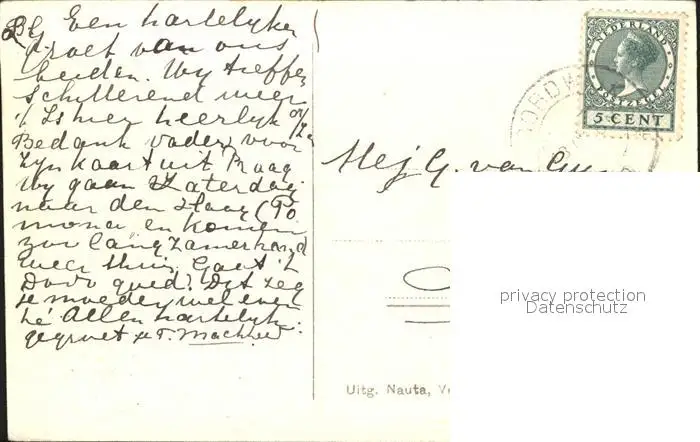 Een hartelyke
groet van ons
beiden. Wy treffen
schitterend weer
Is hier heerlyk
Bedank vader voor
zyn kaart uit Praag
Wy gaan Zaterdag
naar den Haag (Po
mona) en komen
zoo langzamerhand
weer thuis. Gaat 't
Dodo goed? Dit zeg
je moeder wel even
hè Allen hartelyk
gegroet je T.
Mej G. van
NEDERLAND
POSTZEGEL
5 CENT
NOORDWIJK
privacy protection
Datenschutz
Uitg. Nauta, V